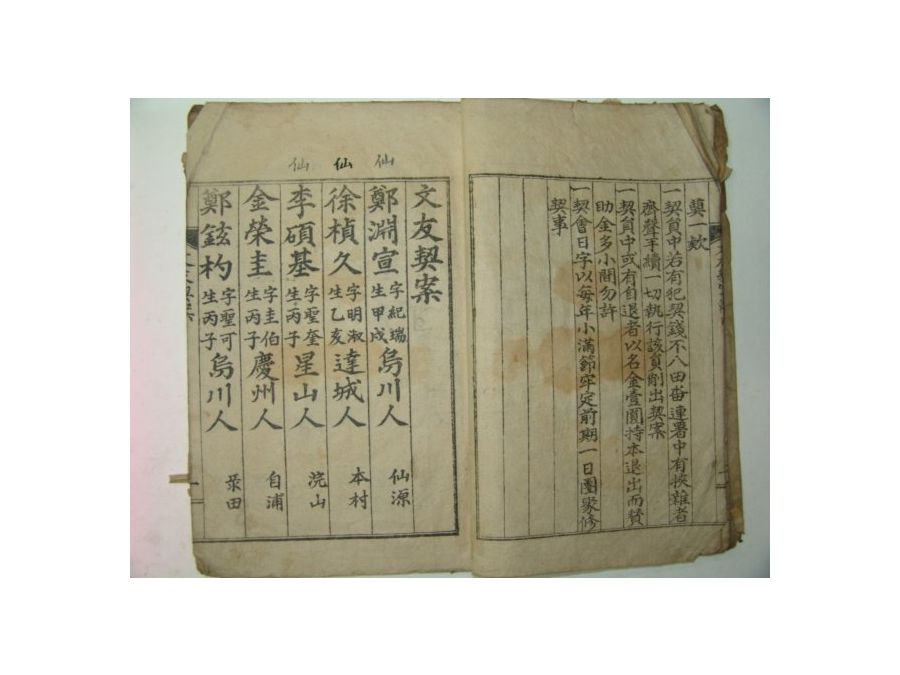 奠一欸
一契員中若有犯契錢不入田畓連署中有挾雜者
齊聲手續一切執行該員削出契案
一契員中或有自退者以名金壹圓持本退出而贊
助金多小間勿許
一契會日字以每年小滿節牢定前期一日團聚修
契事
文友契案
仙 鄭淵宣 字紀瑞 生甲戌 烏川人 仙源
仙 徐楨久 字明淑 生乙亥 達城人 本村
仙 李碩基 字聖奎 生丙子 星山人 浣山
金榮圭 字圭伯 生丙子 慶州人 自浦
鄭鉉杓 字聖可 生丙子 烏川人 田